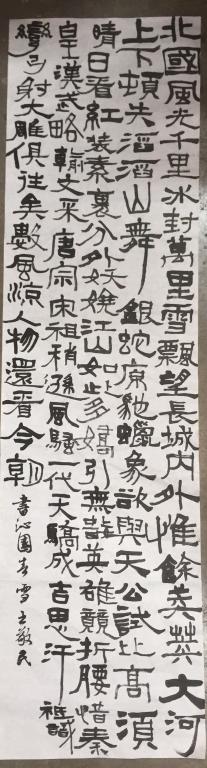 北國風光千里冰封萬里雪飄望長城內外惟餘莽莽大河
上下頓失滔滔山舞銀蛇原馳蠟象欲與天公試比高須
晴日看紅裝素裹分外妖嬈江山如此多嬌引無數英雄競折腰惜秦
皇漢武略輸文采唐宗宋祖稍遜風騷一代天驕成吉思汗祗識
彎弓射大雕俱往矣數風流人物還看今朝
書沁園春雪王敬民